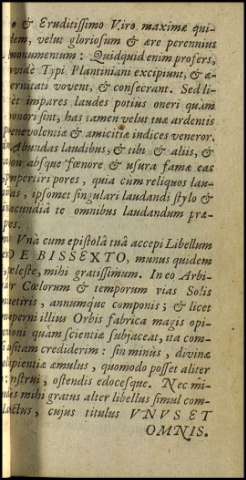 & Eruditissimo Viro maximæ qui-
dem, velut gloriosum & ære perennius
monumentum: Quidquid enim profers,
avidè Typi Plantiniani excipiunt, & æ-
ernitati vovent, & consecrant. Sed li-
et impares laudes potius oneri quàm
honori sint, has tamen velut tuæ ardentis
benevolentiæ & amicitiæ indices veneror.
Abundas laudibus, & tibi & aliis, &
non absque fœnore & usura famæ eas
impertiri potes, quia cum reliquos lau-
das, ipsomet singulari laudandi stylo &
facundiâ te omnibus laudandum præ-
bes.
Vnà cum epistolâ tuâ accepi Libellum
DE BISSEXTO, munus quidem
cæleste, mihi gratissimum. In eo Arbi-
ter Cœlorum & temporum vias Solis
metiris, annumque componis; & licet
superni illius Orbis fabrica magis opi-
nioni quàm scientiæ subjaceat, ita com-
positam crediderim: sin minus, divinæ
sapientiæ æmulus, quomodo posset aliter
construi, ostendis edocesque. Nec mi-
nus mihi gratus alter libellus simul com-
plectus, cujus titulus VNVS ET
OMNIS.